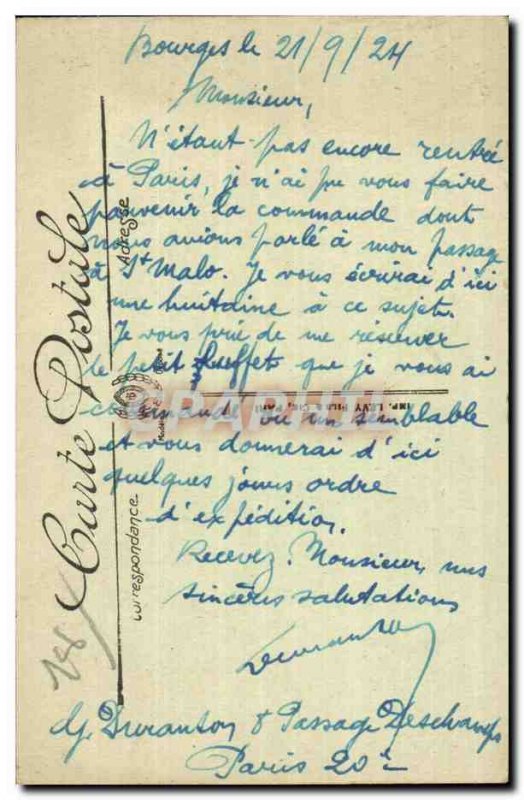 Bourges le 21/9/24
Monsieur,
N'étant pas encore rentré
à Paris, je n'ai pu vous faire
parvenir la commande dont
nous avions parlé à mon passage
à St Malo. Je vous écrirai d'ici
une huitaine à ce sujet.
Je vous prie de me réserver
le petit buffet que je vous ai
commandé ou un semblable
et vous donnerai d'ici
quelques jours ordre
d'expédition.
Recevez, Monsieur, mes
sincères salutations
Duranton
G. Duranton 8 Passage Deschamps
Paris 20e
Carte Postale
Adresse
Correspondance
IMP. LEVY FILS & CIE, PARIS
CPAPHIL